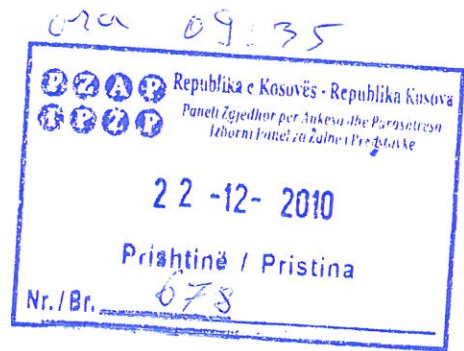 ora 09:35
PZAP Republika e Kosovës - Republika Kosova
IPŽP Paneli Zgjedhor për Ankesa dhe Parashtresa
Izborni Panel za Žalbe i Predstavke
22 -12- 2010
Prishtinë / Pristina
Nr./Br. 678